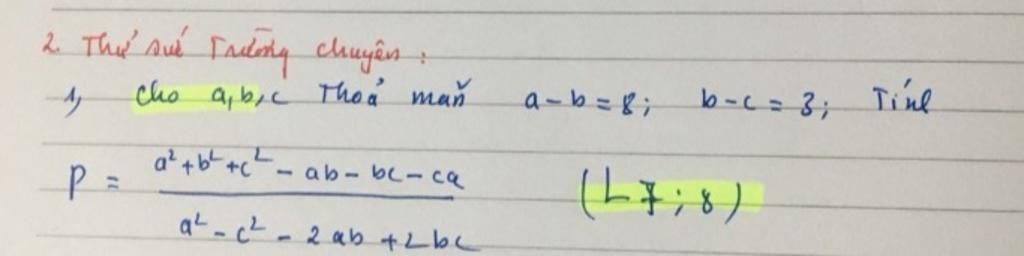 2. Thử sức Trường chuyên:
1, Cho a,b,c Thoả mãn a-b=8; b-c=3; Tính
P = (a²+b²+c²-ab-bc-ca)/(a²-c²-2ab+2bc) (L7;8)